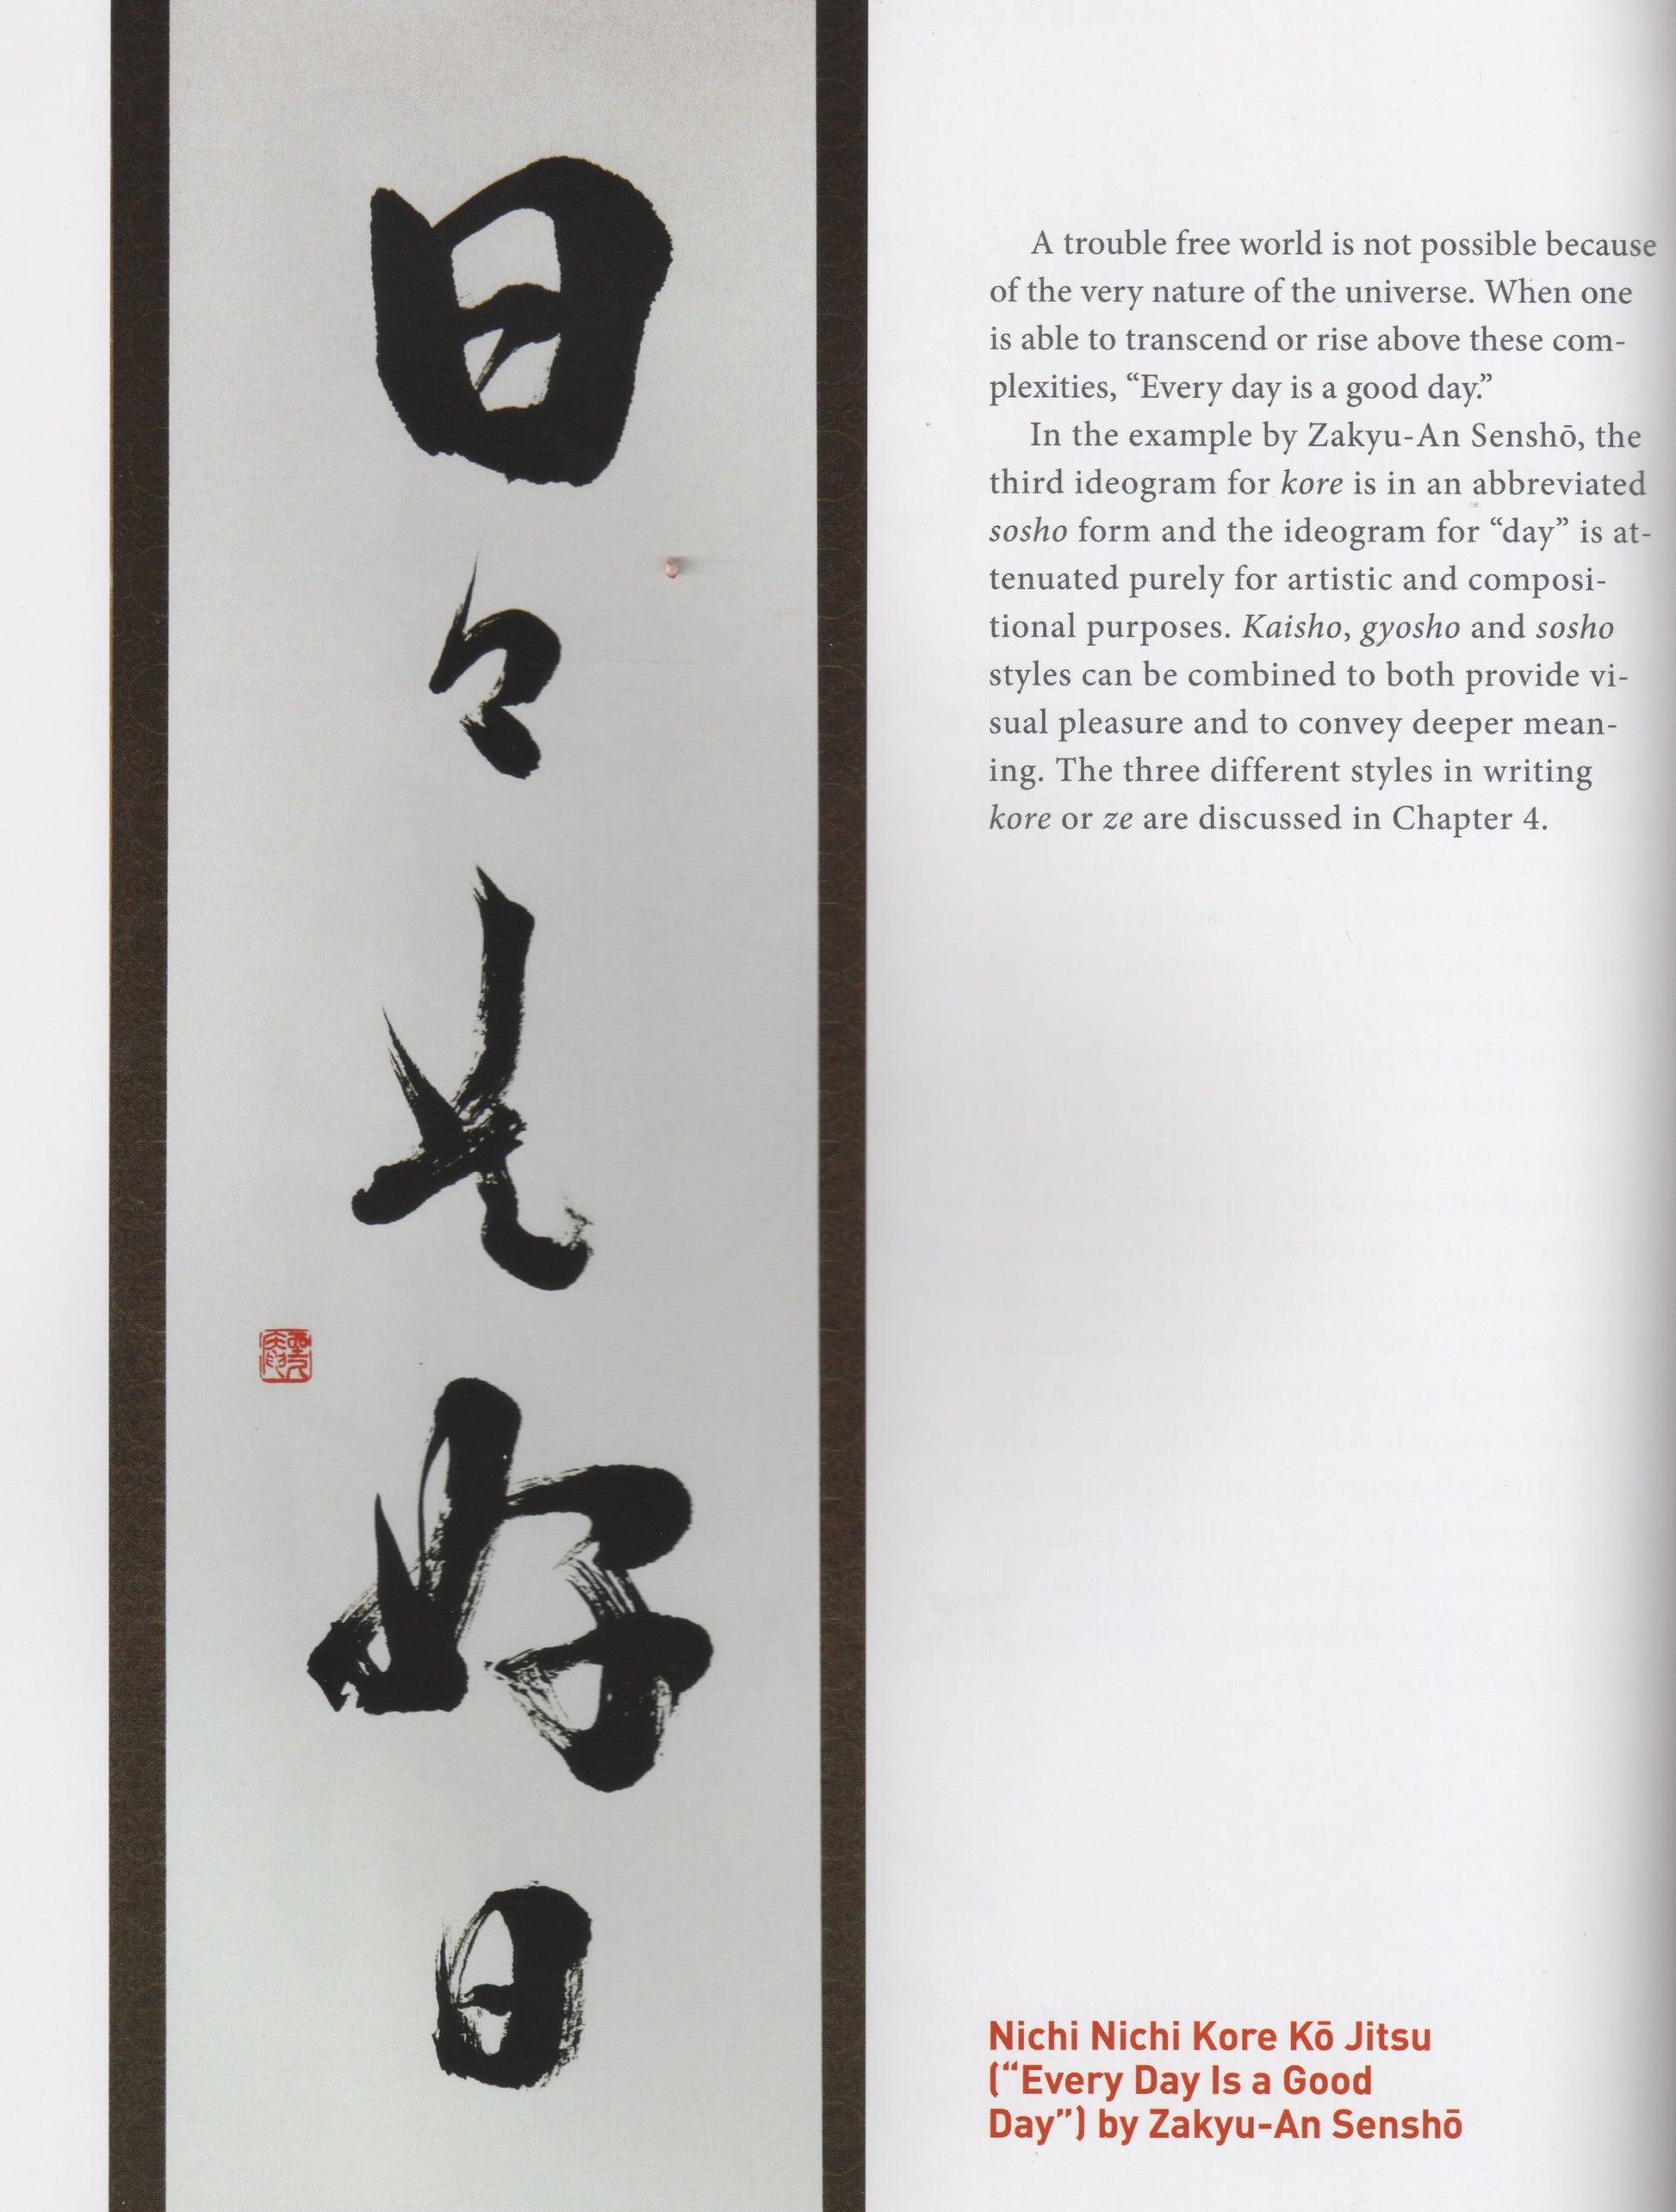 日
々
是
好
日
A trouble free world is not possible because
of the very nature of the universe. When one
is able to transcend or rise above these com-
plexities, “Every day is a good day.”
In the example by Zakyu-An Senshō, the
third ideogram for kore is in an abbreviated
sosho form and the ideogram for “day” is at-
tenuated purely for artistic and composi-
tional purposes. Kaisho, gyosho and sosho
styles can be combined to both provide vi-
sual pleasure and to convey deeper mean-
ing. The three different styles in writing
kore or ze are discussed in Chapter 4.
Nichi Nichi Kore Kō Jitsu
(“Every Day Is a Good
Day”) by Zakyu-An Senshō